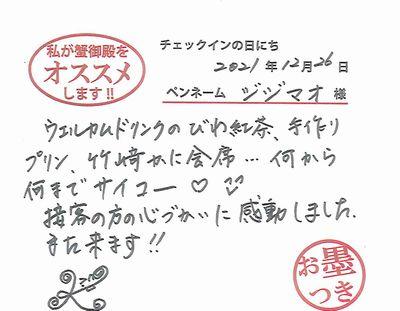 私が蟹御殿を
オススメ
します!!
チェックインの日にち
2021年12月26日
ペンネーム ジジマオ 様
ウェルカムドリンクのびわ紅茶、手作り
プリン、竹崎かに会席…何から
何までサイコー♡
接客の方の心づかいに感動しました。
また来ます!!
お墨
つき